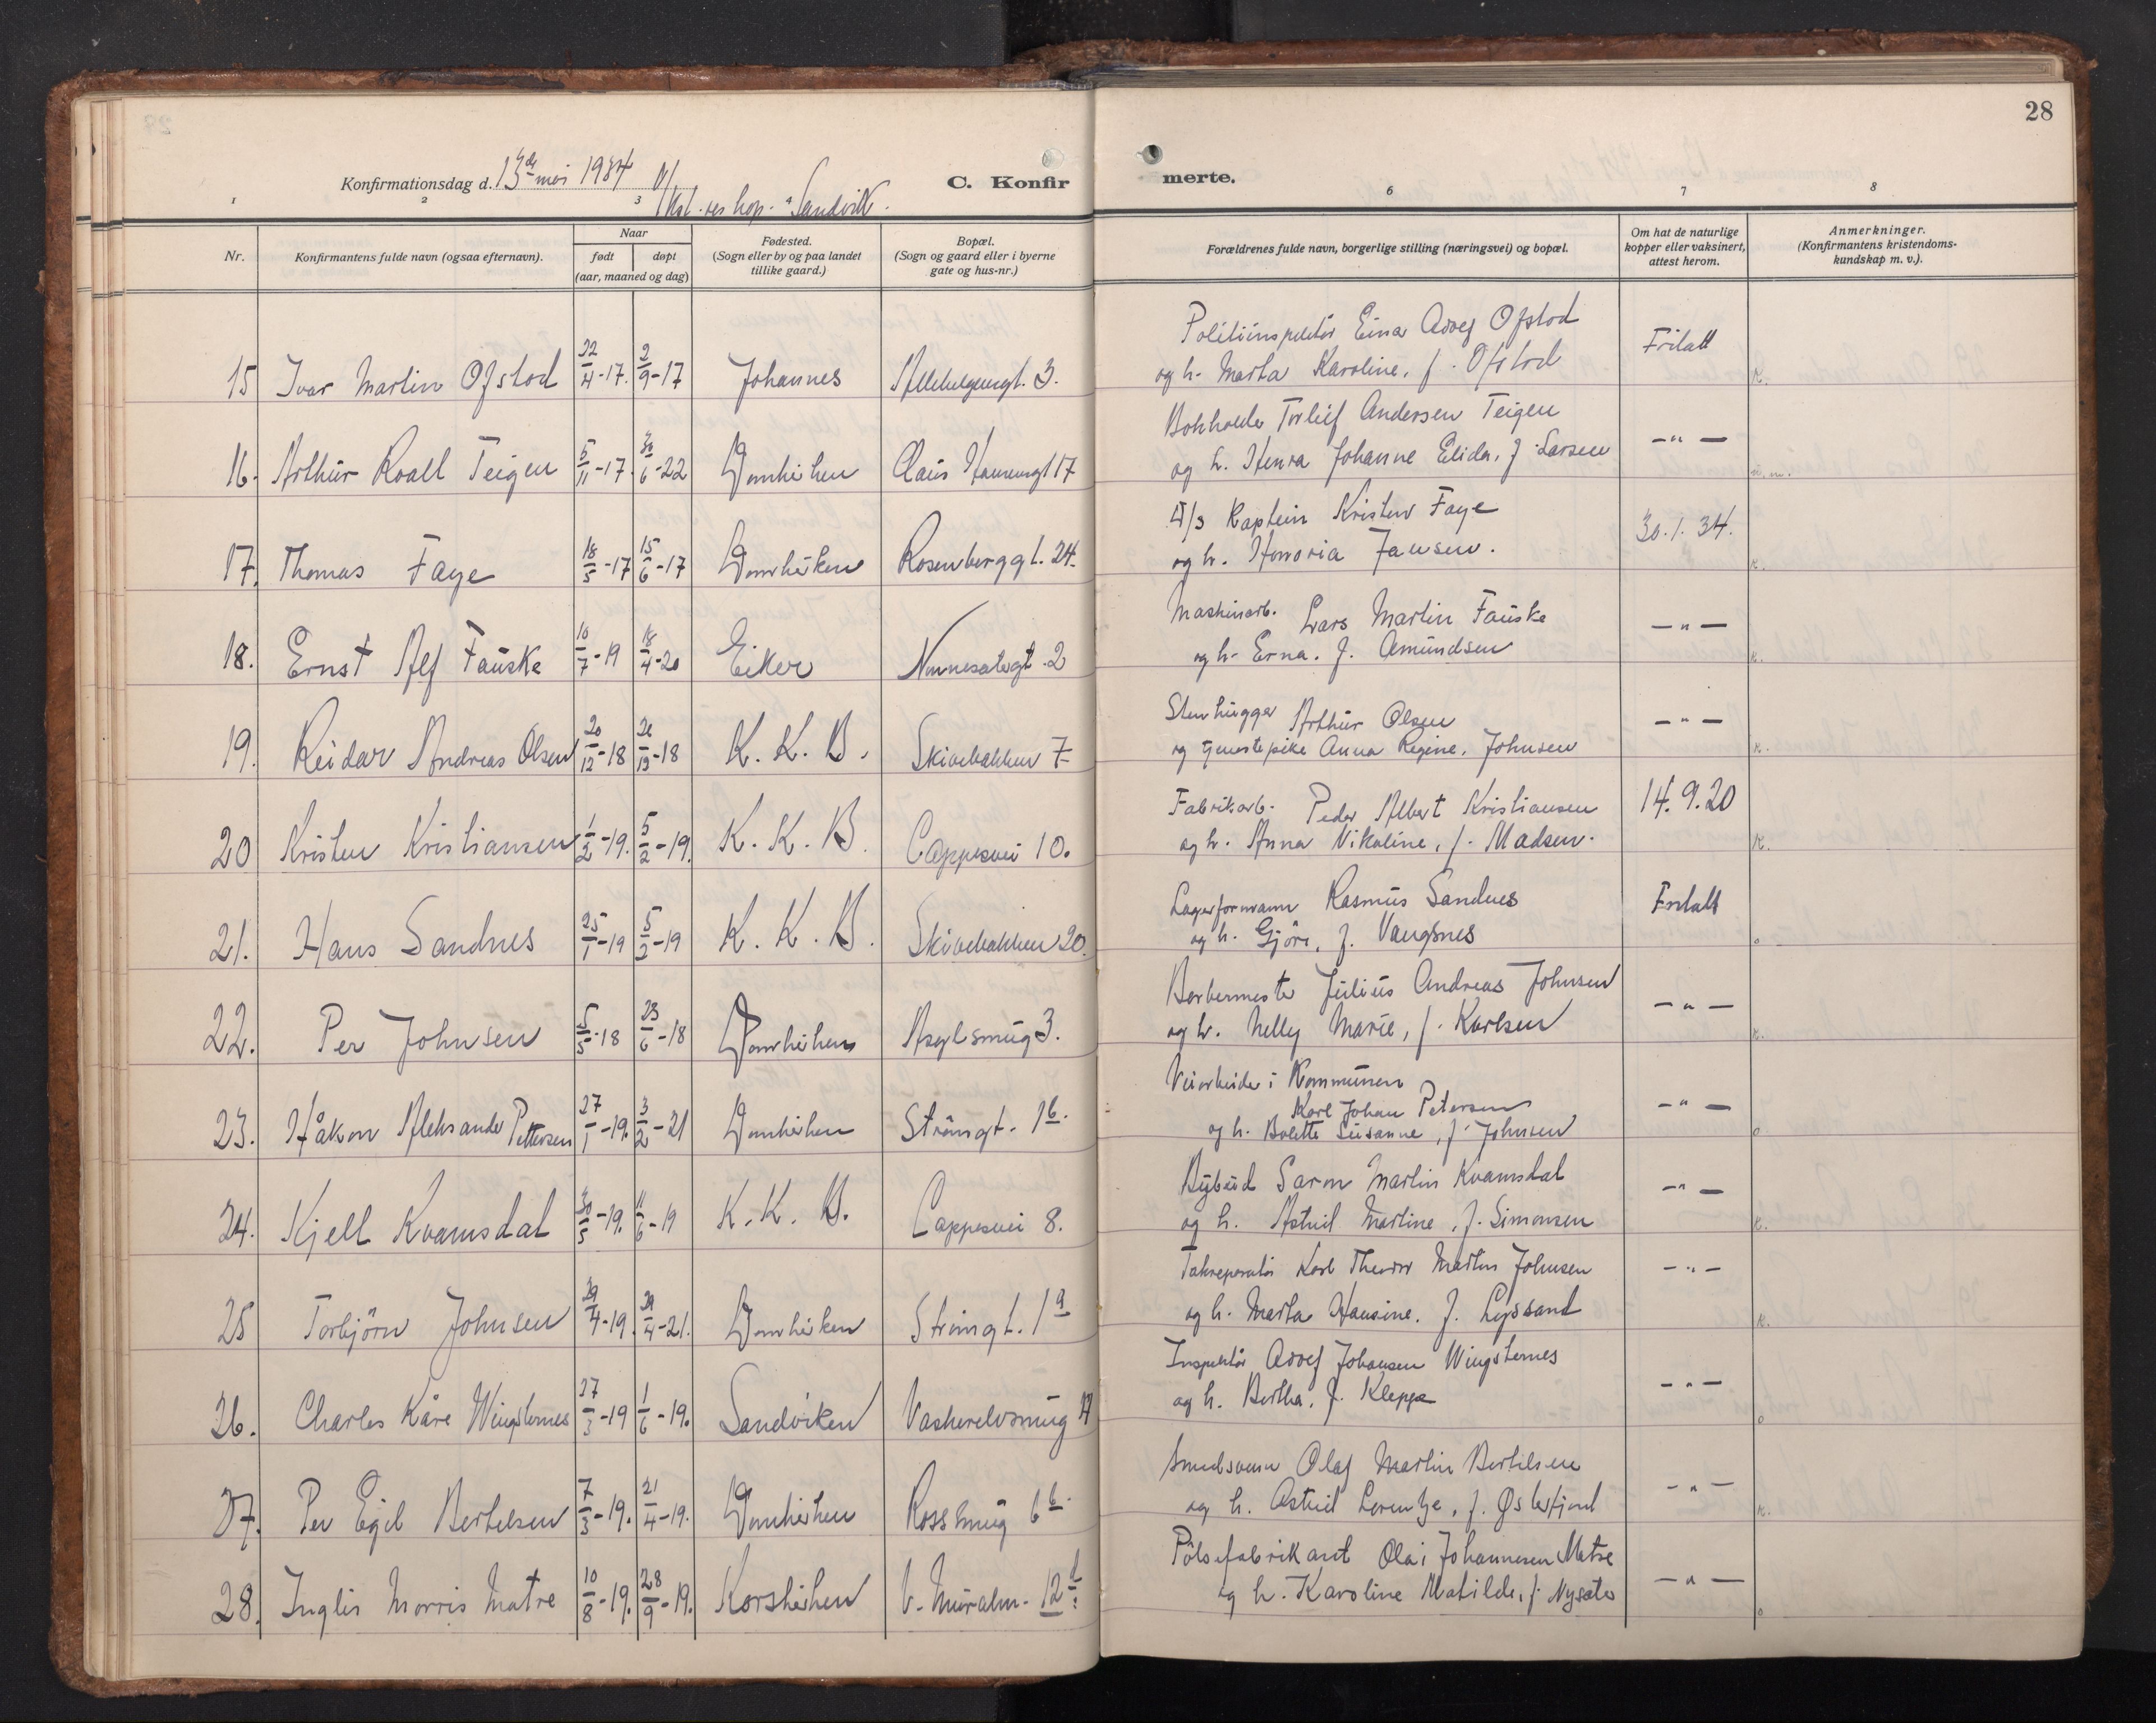 28
Konfirmationsdag d. 13de mai 1934
C. Konfirmerte.
1 2 3 4 6 7 8
Nr.
Konfirmantens fulde navn (ogsaa efternavn).
Naar
født
døpt
(aar, maaned og dag)
Fødested.
(Sogn eller by og paa landet
tillike gaard.)
Bopæl.
(Sogn og gaard eller i byerne
gate og hus-nr.)
Forældrenes fulde navn, borgerlige stilling (næringsvei) og bopæl.
Om hat de naturlige
kopper eller vaksinert,
attest herom.
Anmerkninger.
(Konfirmantens kristendoms-
kundskap m. v.).
Politiinspektör Einar Adolf Ofstad
15 Ivar Martin Ofstad 22/4-17. 2/9-17 Johannes Allehelgensgt. 3. og h. Marta Karoline, f. Ofstad Fritatt K.
Bokholder Torleif Andersen Teigen
16. Arthur Roald Teigen 5/11-17. 30/6-22 Domkirken Claus 17 og h. Johanne Elida, f. Larsen -"-
Kaptein Kristen Faye
17. Thomas Faye 18/5-17 15/6-17 Domkirken Rosenberggt. 24. og h. Honoria Jansen. 30.1.34. K.
Maskinarb. Lars Martin Fauske
18. Ernst Alf Fauske 10/7-19 18/4-20 Eiker Nonnesetergt. 2 og h. Erna. f. Amundsen -"- K.
Stenhugger Arthur Olsen
19. Reidar Andreas Olsen 20/12-18 26/12-18 K. K. B. Skivebakken 7 og tjenestepike Anna Regine, Johnsen -"- K.
Fabrikarb. Peder Albert Kristiansen
20 Kristen Kristiansen 1/2-19. 5/2-19. K. K. B. Cappesvei 10. og h. Anna Nikoline, f. Madsen. 14.9.20 K.
Lagerformann Rasmus Sandnes
21. Hans Sandnes 25/1-19 5/2-19 K. K. B. Skivebakken 20. og h. Gjöri, f. Vangsnes Fritatt o
Barbermester Julius Andreas Johnsen
22. Per Johnsen 5/5-18 23/6-18 Domkirken Asylsmug 3. og h. Nelly Marie, f. Karlsen -"- K.
Veiarbeider i Kommunen
Karl Johan Petersen
23. Håkon Aleksander Pettersen 27/1-19. 3/2-21 Domkirken Strömgt. 1b. og h. Bolette Susanne, f. Johnsen -"- o
Bybud Saron Martin Kvamsdal
24. Kjell Kvamsdal 30/5-19. 11/6-19 K. K. B. Cappesvei 8. og h. Astrid Martine, f. Simonsen -"- K.
Takreparatör Karl Theodor Martin Johnsen
25 Torbjörn Johnsen 29/4-19. 29/4-21. Domkirken Strömgt. 1a og h. Marta Hansine. f. Lyssand -"- K.
Inspektör Adolf Johansen Wingsternes
26. Charles Kåre Wingsternes 27/3-19 1/6-19. Sandviken Vaskerelvsmug og h. Bertha, f. Kleppe -"- o
Smedsvenn Olaf Martin Bertelsen
27. Per Egil Bertelsen 7/3-19. 21/4-19. Domkirken Ross smug 6b. og h. Astrid Lorentze, f. Østerfjord -"- K.
Pölsefabrikant Olai Johannesen Matre
28. Inglis Morris Matre 10/8-19. 28/9-19. Korskirken V. Muralm. 12d. og h. Karoline Matilde, f. Nysæter -"- o